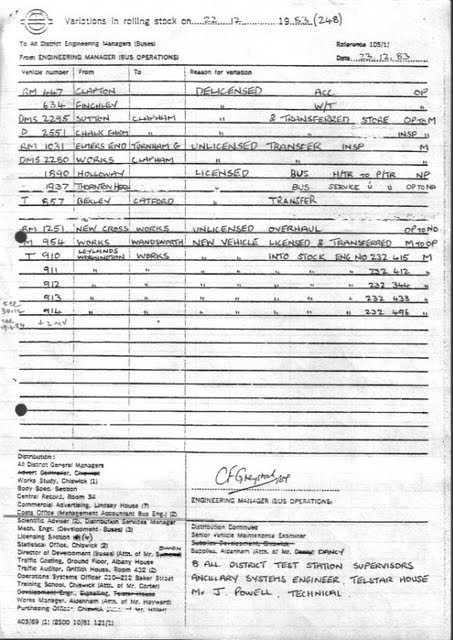 Variations in rolling stock on 22.12 1983 (248)
To All District Engineering Managers (Buses) Reference 105/1/
From ENGINEERING MANAGER (BUS OPERATIONS) Date 23.12.83
Vehicle number From To Reason for variation
RM 447 CLAPTON DELICENSED ACC OP
634 FINCHLEY " W/T "
DMS 2295 SUTTON CLAPHAM " & TRANSFERRED STORE OP TO M
D 2551 CHALK FARM " " " INSP "
RM 1031 ELMERS END TURNHAM G UNLICENSED TRANSFER INSP M
DMS 2260 WORKS CLAPHAM " " "
1890 HOLLOWAY LICENSED BUS H/TR TO P/TR NP
1937 THORNTON HEATH " BUS SERVICE U U OP TO NO
T 857 BEXLEY CATFORD " TRANSFER
RM 1251 NEW CROSS WORKS UNLICENSED OVERHAUL OP TO NO
M 954 WORKS WANDSWORTH NEW VEHICLE LICENSED & TRANSFERRED M TO OP
T 910 LEYLANDS WORKINGTON WORKS " " INTO STOCK ENG NO 232 415 M
911 " " " " " " 232 412 "
912 " " " " " " 232 344 "
913 " " " " " " 232 433 "
914 " " " " " " 232 496 "
see
Distribution:
All District General Managers
Advert Controller, Chiswick
Works Study, Chiswick (1)
Body Spec. Section
Central Record, Room 34
Commercial Advertising, Lindsay House (7)
Costs Office (Management Accountant Bus Eng.) (2)
Scientific Adviser (2), Distribution Services Manager
Mech. Engr. (Development-Buses) (3)
Licensing Section (4)
Statistical Office, Chiswick (2)
Director of Development (Buses) (Attn. of Mr. SIMON
Traffic Costing, Ground Floor, Albany House
Traffic Auditor, Griffith House, Room 432 (2)
Operations Systems Officer 210–212 Baker Street
Training School, Chiswick (Attn. of Mr. Carter)
Development Engr., Signalling, Telstar House
Works Manager, Aldenham (Attn. of Mr. Hayward)
Purchasing Officer, Chiswick (Attn. of Mr. Hillier)
ENGINEERING MANAGER (BUS OPERATIONS)
Distribution Continued
Senior Vehicle Maintenance Examiner
Supplies Development, Chiswick
Supplies, Aldenham (Attn. of Mr. DANCY
8 ALL DISTRICT TEST STATION SUPERVISORS
ANCILLARY SYSTEMS ENGINEER, TELSTAR HOUSE
Mr J. POWELL, TECHNICAL
403/69 (1) (2500 10/81 121/1)